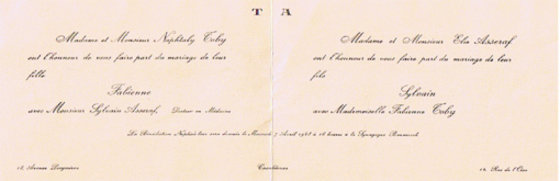 T A
Madame et Monsieur Nephtaly Toby
ont l'honneur de vous faire part du mariage de leur
fille
Fabienne
avec Monsieur Sylvain Asseraf, Docteur en Médecine
Madame et Monsieur Elie Asseraf
ont l'honneur de vous faire part du mariage de leur
fils
Sylvain
avec Mademoiselle Fabienne Toby
La Bénédiction Nuptiale leur sera donnée le Mercredi 7 Avril à 16 heures à la Synagogue
Avenue
Casablanca
Rue de